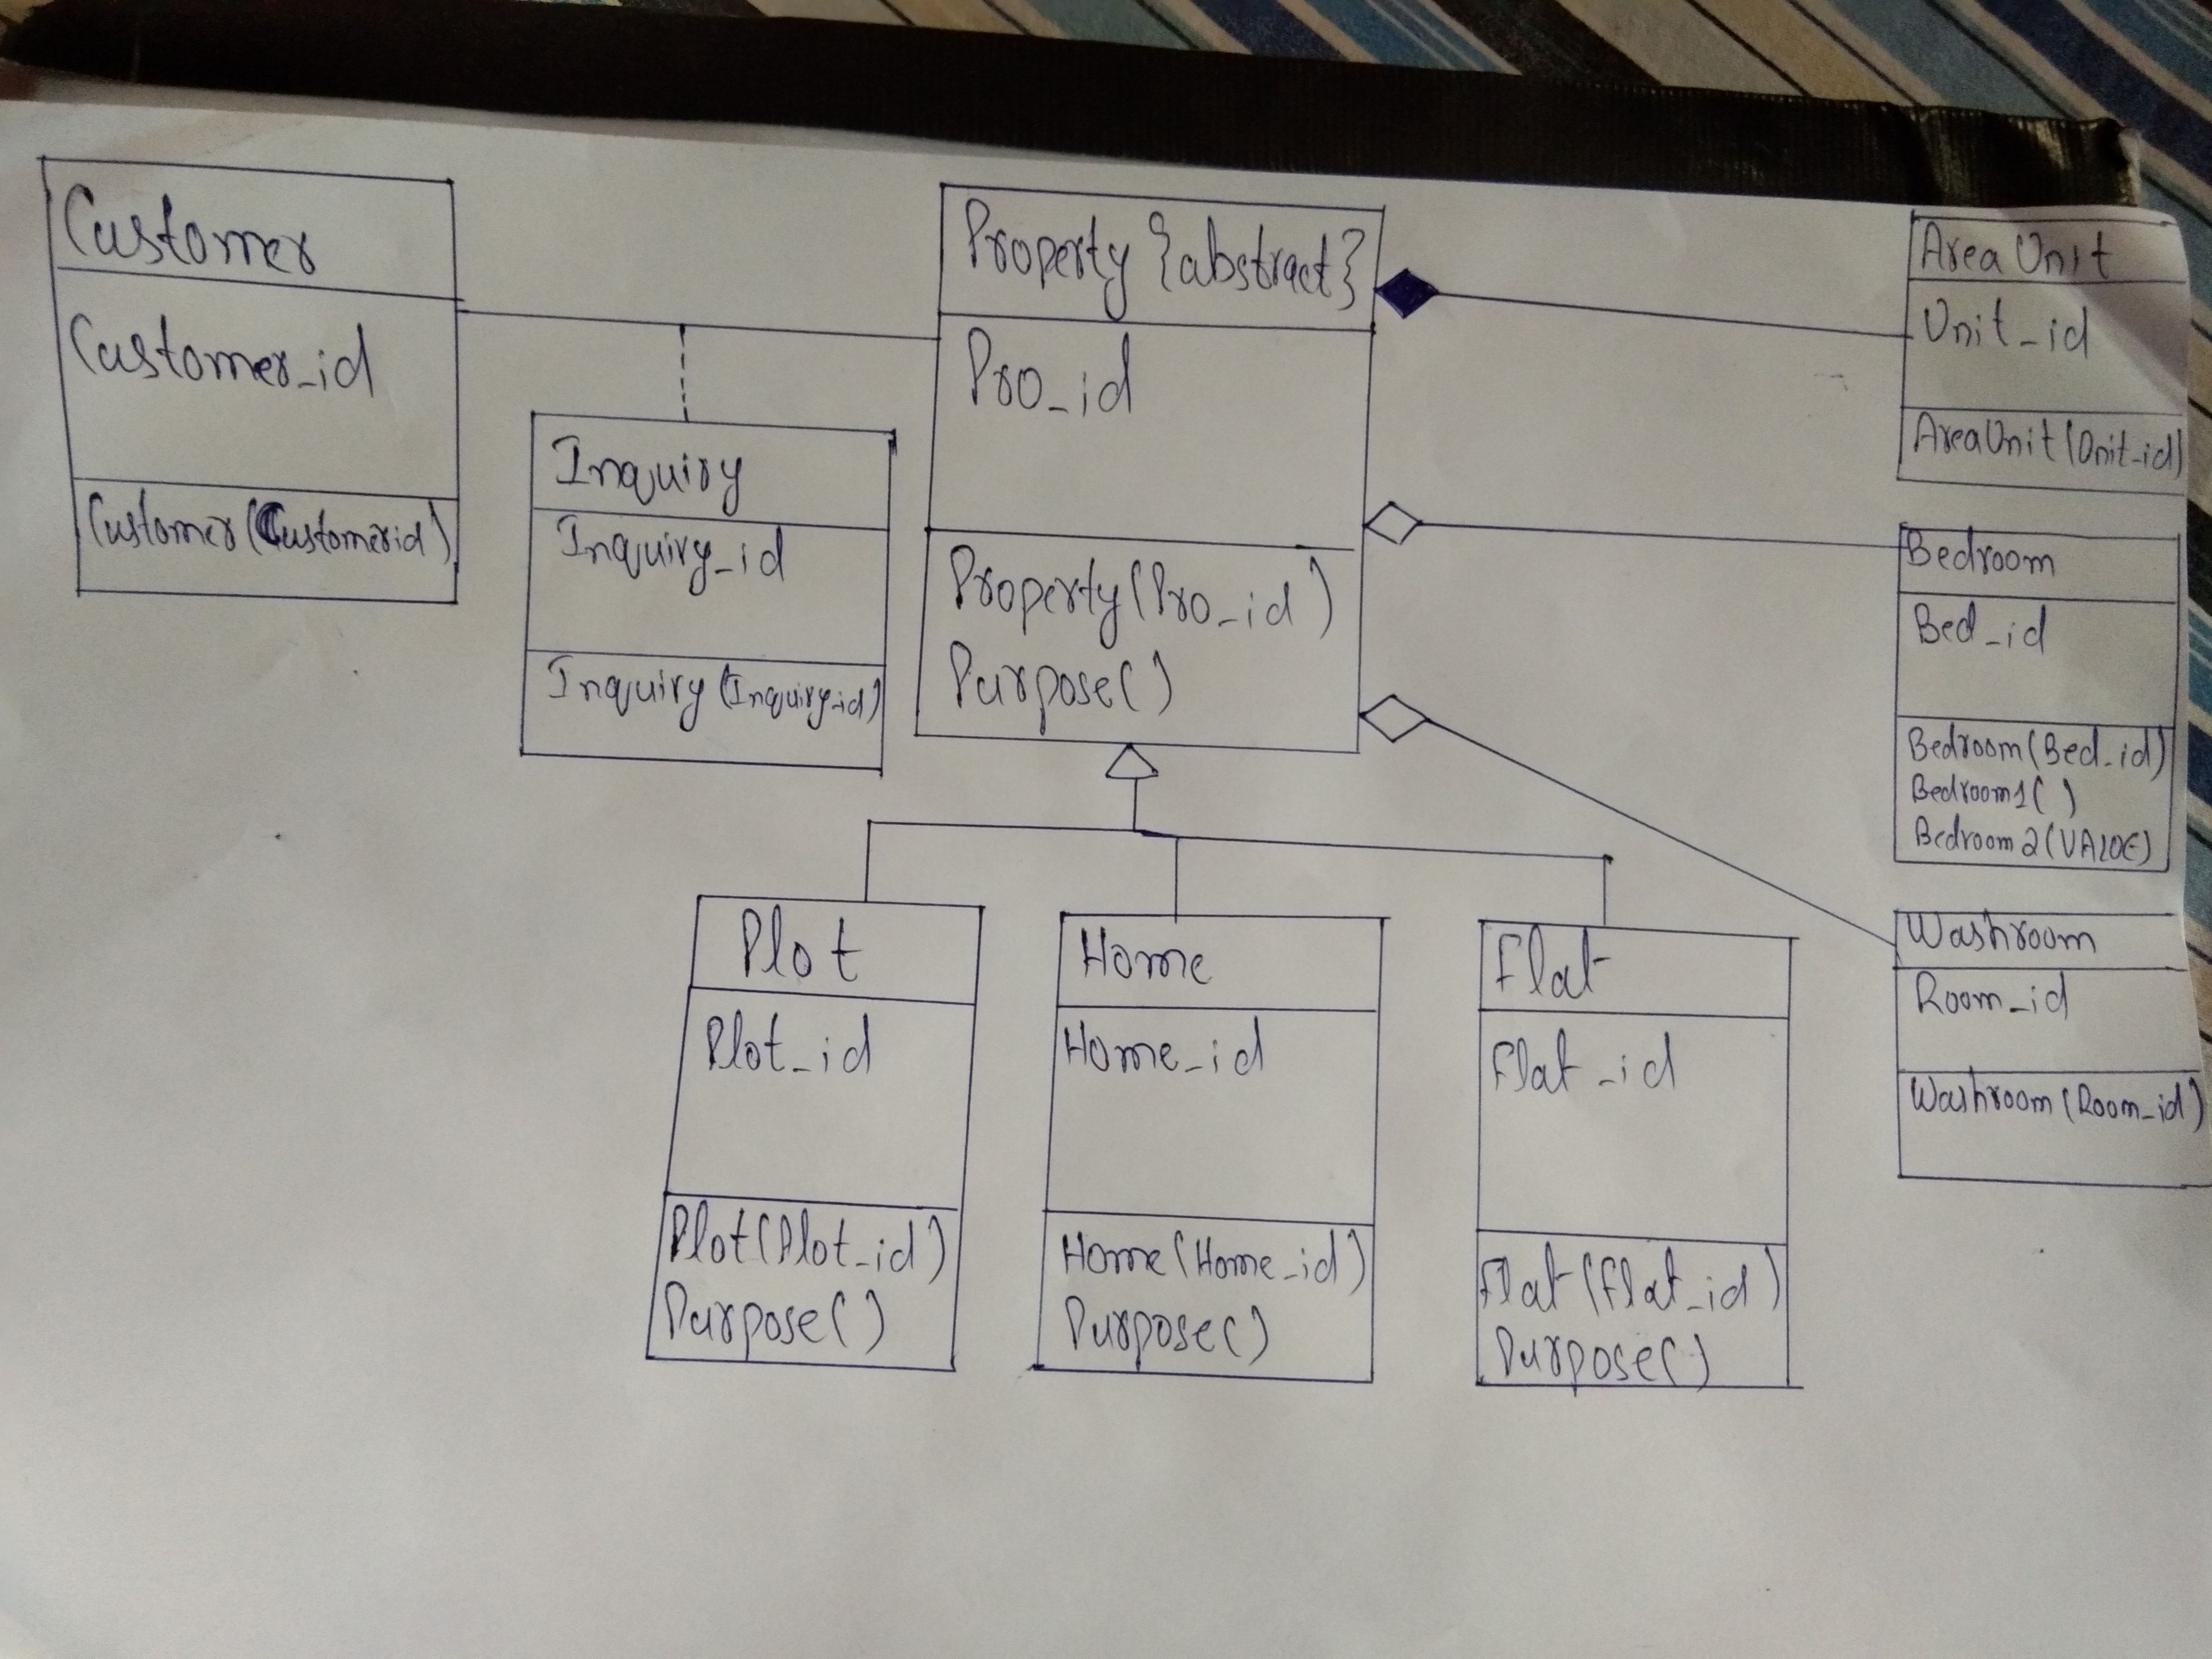 Customer
Customer_id
Customer(Customerid)
Inquiry
Inquiry_id
Inquiry(Inquiry_id)
Property {abstract}
Pro_id
Property(Pro_id)
Purpose()
AreaUnit
Unit_id
AreaUnit(Unit_id)
Bedroom
Bed_id
Bedroom(Bed_id)
Bedroom1()
Bedroom2(VALUE)
Washroom
Room_id
Washroom(Room_id)
Plot
Plot_id
Plot(Plot_id)
Purpose()
Home
Home_id
Home(Home_id)
Purpose()
Flat
Flat_id
Flat(Flat_id)
Purpose()